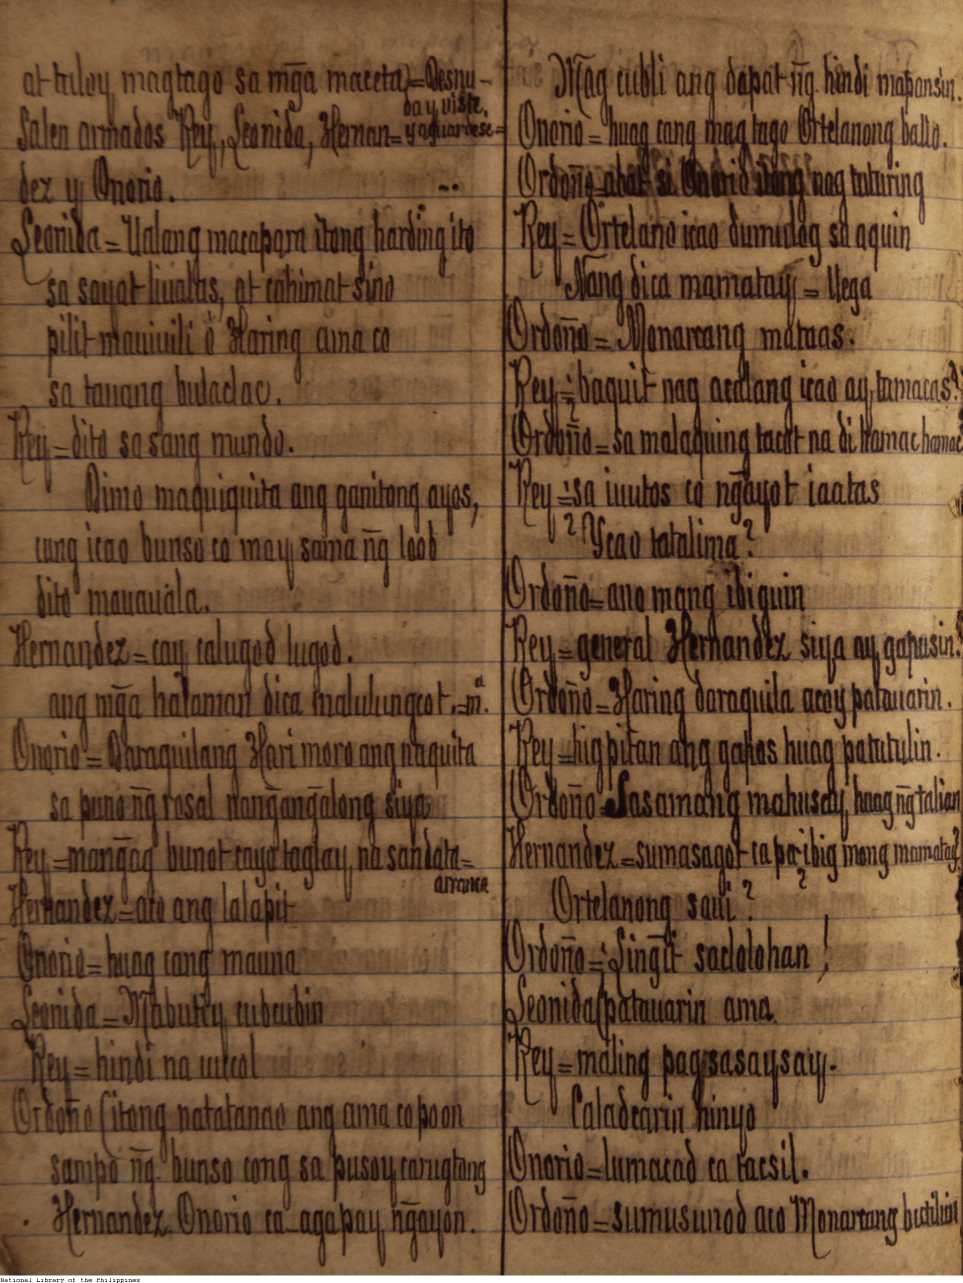 at tuloy magtago sa mg̃a maceta)=Desnu-
da y viste,
Salen armados Rey, Leonida, Hernan= y aguardese=
dez y Onorio.
Leonida = Ualang macapara itong harding ito
sa sayat liualas, at cahimat sino
pilit mauiuili ó Haring ama co
sa tanang bulaclac.
Rey = dito sa sang mundo.
Dimo maquiquita ang ganitong ayos,
cung icao bunso co may sama ng̃ loob
dito mauauala.
Hernandez = cay calugod lugod.
ang mg̃a halaman dica malulungcot.=mª.
Onorio = Daraquilang Hari moro ang naquita
sa puno ng̃ rosal nang̃ang̃along siya
Rey = mang̃ag bunot cayo taglay na sandata=
arranca
Hernandez = aco ang lalapit
Onorio = huag cang mauna
Leonida = Mabuti,y cubcubin
Rey = hindi na uucol
Ordoño (itong natatanao ang ama co poon
sampo ng̃ bunso cong sa pusoy carugtong
Hernandez Onorio ca agapay ng̃ayon.
Mag cubli ang dapat ng̃ hindi mapansin.
Onorio = huag cang mag tago Ortelanong ballo.
Ordoño = abat si Onorio itong nag tuturing
Rey = Ortelano icao dumulog sa aquin
Nang dica mamatay = llega
Ordoño = Monarcang mataas.
Rey = ¿baquit nag acalang icao ay, tumacas?
Ordoño = sa malaquing tacot na di hamac hamac
Rey = ¿sa iuutos co ng̃ayot iaatas
? Ycao tatalima?
Ordoño = ano mang ibiguin
Rey = general Hernandez siya ay gapusin.
Ordoño = Haring daraquila acoy patauarin.
Rey = higpitan ang gapos huag patutulin.
Ordoño = Sasamang mahusay, huag ng̃ talian
Hernandez = sumasagot ca pa ¿ibig mong mamatay?
Ortelanong saui?
Ordoño = ¡Sing̃it saclolohan!
Leonida (patauarin ama.
Rey = maling pagsasaysay.
Caladcarin hinyo
Onorio = lumacad ca tacsil.
Ordoño = sumusunod aco Monarcang butihin
National Library of the Philippines